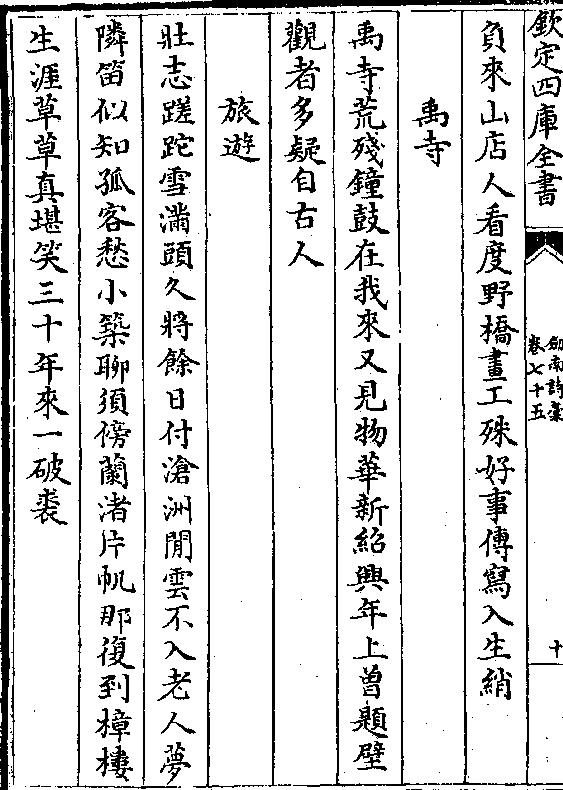 欽定四庫全書
劍南詩藁
卷七十五
十
負來山店人看度野橋畫工殊好事傳寫入生綃
禹寺
禹寺荒殘鐘鼓在我來又見物華新紹興年上曽題壁
觀者多疑自古人
旅遊
壯志蹉跎雪滿頭久將餘日付滄洲閒雲不入老人夢
隣笛似知孤客愁小築聊須傍蘭渚片帆那復到樟樓
生涯草草真堪笑三十年來一破裘